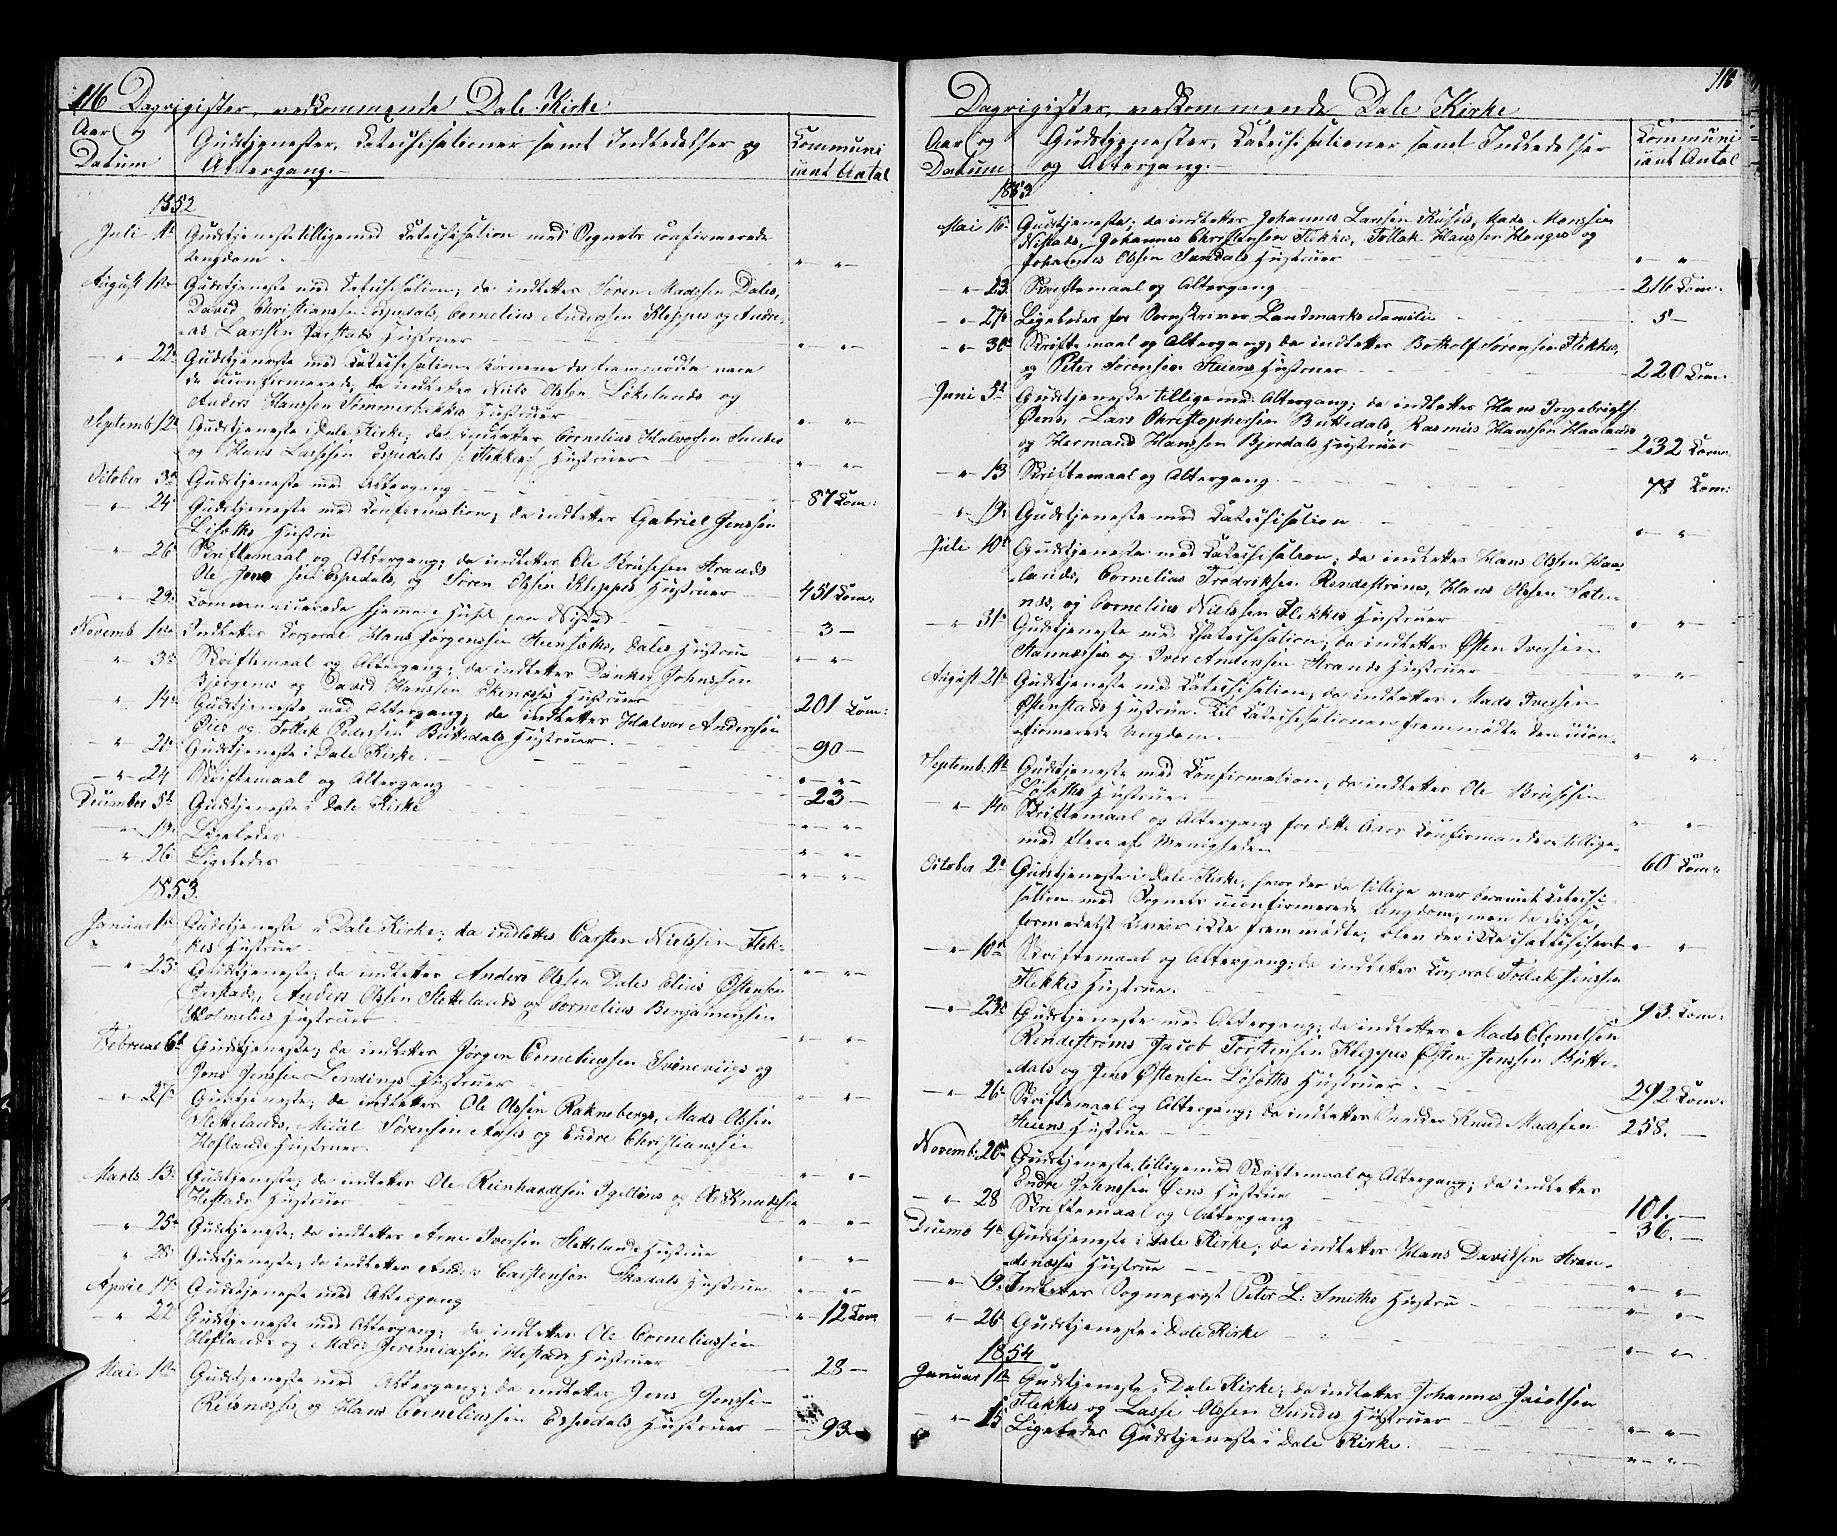 116 Dagregister, vedkommende Dale Kirke
Aar og Datum
Gudstjenester, Catechisationer samt Indledelser og
Altergang.
Communicant Antal
1852
Juli 11te Gudstjeneste tilligemed Catechisation med Sognets confirmerede
Ungdom. " "
August 1ste Gudstjeneste med Catechisation; da indledtes Søren Madssen Dales,
David Christianssen Espedals, Cornelius Anderssen Kleppes og Andre-
as Larssen Jarstads Hustruer " "
" 22de Gudstjeneste med Catechisation. Børnene der fremmødte vare
de uconfirmerede, da indledtes Niels Olssen Løkelands og
Anders Hanssen Sømmersbakkes Hustruer " "
Septemb. 12te Gudstjeneste i Dale Kirke; da indledtes Cornelius Halvorsen Sundes
og Hans Larssen Espedals Flekkes Hustruer " "
October 3die Gudstjeneste med Altergang 87 Com:
" 24de Gudstjeneste med Confirmation; da indledtes Gabriel Jenssen
Løsæths Hustru
" 26 Skriftemaal og Altergang; da indledtes Ole Brusesen Strands
Ole Jens søn Espedals, og Søren Olssen Kleppes Hustruer 451 Com:
" 29 Communicerede hjemme i Huset paa Nistad 3
Novemb 1ste Indledtes Corporal Hans Jørgenssen Steensæths, Dales Hustrue " "
" 3die Skriftemaal og Altergang; da indledtes Danker Johnssen
Bjørgenes og David Hanssen Ekenæsses Hustruer 201 Com:
" 14de Gudstjeneste med Altergang; da indledtes Halvor Anderssen
Øies og Tollak Pedersen Bøttedals Hustruer. 90
" 21de Gudstjeneste i Dale Kirke. " "
" 24 Skriftemaal og Altergang 23
December 5te Gudstjeneste i Dale Kirke " "
" 19de Ligeledes " "
" 26 Ligeledes " "
1853.
Januar 1ste Gudstjeneste i Dale Kirke; da indledtes Carsten Nielssen Flek-
kes Hustrue " "
" 23 Gudstjeneste; da indledtes Anders Olssen Dales Elias Østensen
Jarstads, Anders Olssen Slettelands og Cornelius Benjaminsen
Holmelies Hustruer " "
Februar 6te Gudstjeneste; da indledtes Jørgen Corneliussen Svineviigs og
Jens Jenssen Lendings Hustruer " "
" 27 Gudstjeneste; da indledtes Ole Olssen Raknebergs, Mads Olssen
Slettelands, Miæl Sørensen Aases og Endre Christianssen
Hoflands Hustruer. " "
Marts 13 Gudstjeneste; da indledtes Ole Reinhardtsen Igelløns og Ole Knudssen
Nistads Hustruer " "
" 25 Gudstjeneste; da indledtes Arne Iversen Slettelands Hustrue " "
" 28 Gudstjeneste; da indledtes Anders Carstensen Skadals Hustrue " "
April 17 Gudstjeneste med Altergang 12 Com
" 22 Gudstjeneste med Altergang; da indledtes Ole Corneliussen
Hoflands og Mads Jeremiassen Nistads Hustruer 28
Mai 1ste Gudstjeneste med Altergang; da indledtes Jens Jenssen
Reksnæsses og Hans Corneliussen Espedals Hustruer 93
116
Dagregister, vedkommende Dale Kirke
Aar og Datum
Gudstjenester, Catechisationer samt Indledelser
og Altergang.
Communicant Antal
1853
Mai 16 Gudstjeneste; da indledtes Johannes Larssen Risnes, Mads Monssen
Nistads, Johannes Christensen Flekkes, Tollak Hanssen Hauges og
Johannes Olssen Sundals Hustruer " "
" 23 Skriftemaal og Altergang 216 Com:
" 27 Ligeledes for Sorenskriver Landmarks Familie 5
" 30 Skriftemaal og Altergang; da indledtes Botholf Sørensen Flekkes,
og Peter Sørensen Steiens Hustruer 220 Com:
Juni 5te Gudstjeneste tilligemed Altergang; da indledtes Hans Ingebrigts.
Øens, Lars Christophersen Bøttedals, Rasmus Hanssen Haalands
og Hermand Hanssen Bjordals Hustruer 232 Com:
" 13 Skriftemaal og Altergang 78 Com:
" 19 Gudstjeneste med Catechisation " "
Juli 10de Gudstjeneste med Catechisation; da indledtes Hans Olssen Haa-
lands, Cornelius Fredriksen Rendestrøms, Hans Olssen Sæte-
næs, og Cornelius Nielssen Flekkes Hustruer " "
" 31 Gudstjeneste med Catechisation; da indledtes Østen Iversen
Stannæsses og Iver Anderssen Strands Hustruer " "
August 21 Gudstjeneste med Catechisation, da indledtes Mads Iverssen
Østenstads Hustrue. Til Catechisationen fremmødte den ucon-
firmerede Ungdom. " "
Septemb. 11te Gudstjeneste med Confirmation; da indledtes Ole Brusesen
Løsæths Hustrue. " "
" 14 Skriftemaal og Altergang for dette Aars Confirmandere tillige-
med flere af Menigheden 60 Com:
October 2den Gudstjeneste i Dale Kirke, hvor der da tillige var berammet Catechi-
sation med Sognets uconfirmerede Ungdom, men da disse,
formedelst Uveir ikke fremmødte, blev der ikke catechiseret " "
" 10de Skriftemaal og Altergang; da indledtes Corporal Tollak Jenssen
Flekkes Hustrue. 93. Com:
" 23 Gudstjeneste med Altergang; da indledtes Mads Clemetsen
Rendestrøms Jacob Torstensen Kleppes Østen Jenssen Bøtte-
dals og Jens Østensen Løsæths Hustruer. 292 Com:
" 26 Skriftemaal og Altergang; da indledtes Snedker Knud Madssen
Steiens Hustrue 258.
Novemb: 20de Gudstjeneste tilligemed Skriftemaal og Altergang; da indledtes
Endre Johnssen Øens Hustrue 101.
" 28 Skriftemaal og Altergang 36.
Decemb 4de Gudstjeneste i Dale Kirke; da indledtes Hans Davidsen Stran-
denæsses Hustrue " "
" 19: Indledtes Sogneprest Peter L: Smiths Hustru " "
" 26 Gudstjeneste i Dale Kirke " "
1854
Januar 1ste Gudstjeneste i Dale Kirke; da indledtes Johannes Jacobsen
Flekkes og Lasse Olssen Sundes Hustruer " "
" 15 Ligeledes Gudstjeneste i Dale Kirke. " "